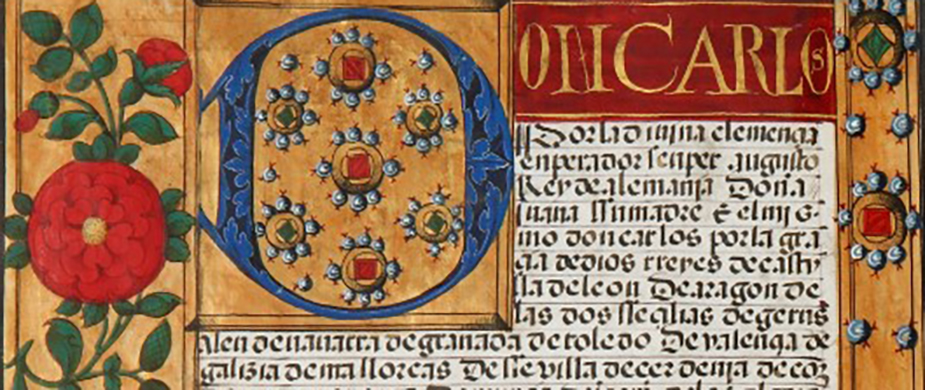 DON CARLOS
Por la divina clemençia
enperador senper augusto
Rey de alemania Doña
juana su madre & el mis-
mo don carlos por la gra-
çia de dios rreyes de casti-
lla de leon De aragon de
las dos seçilias de gerus
alen de navarra de granada de toledo De valençia de
galizia de mallorcas De sevilla de cerdenia de cor